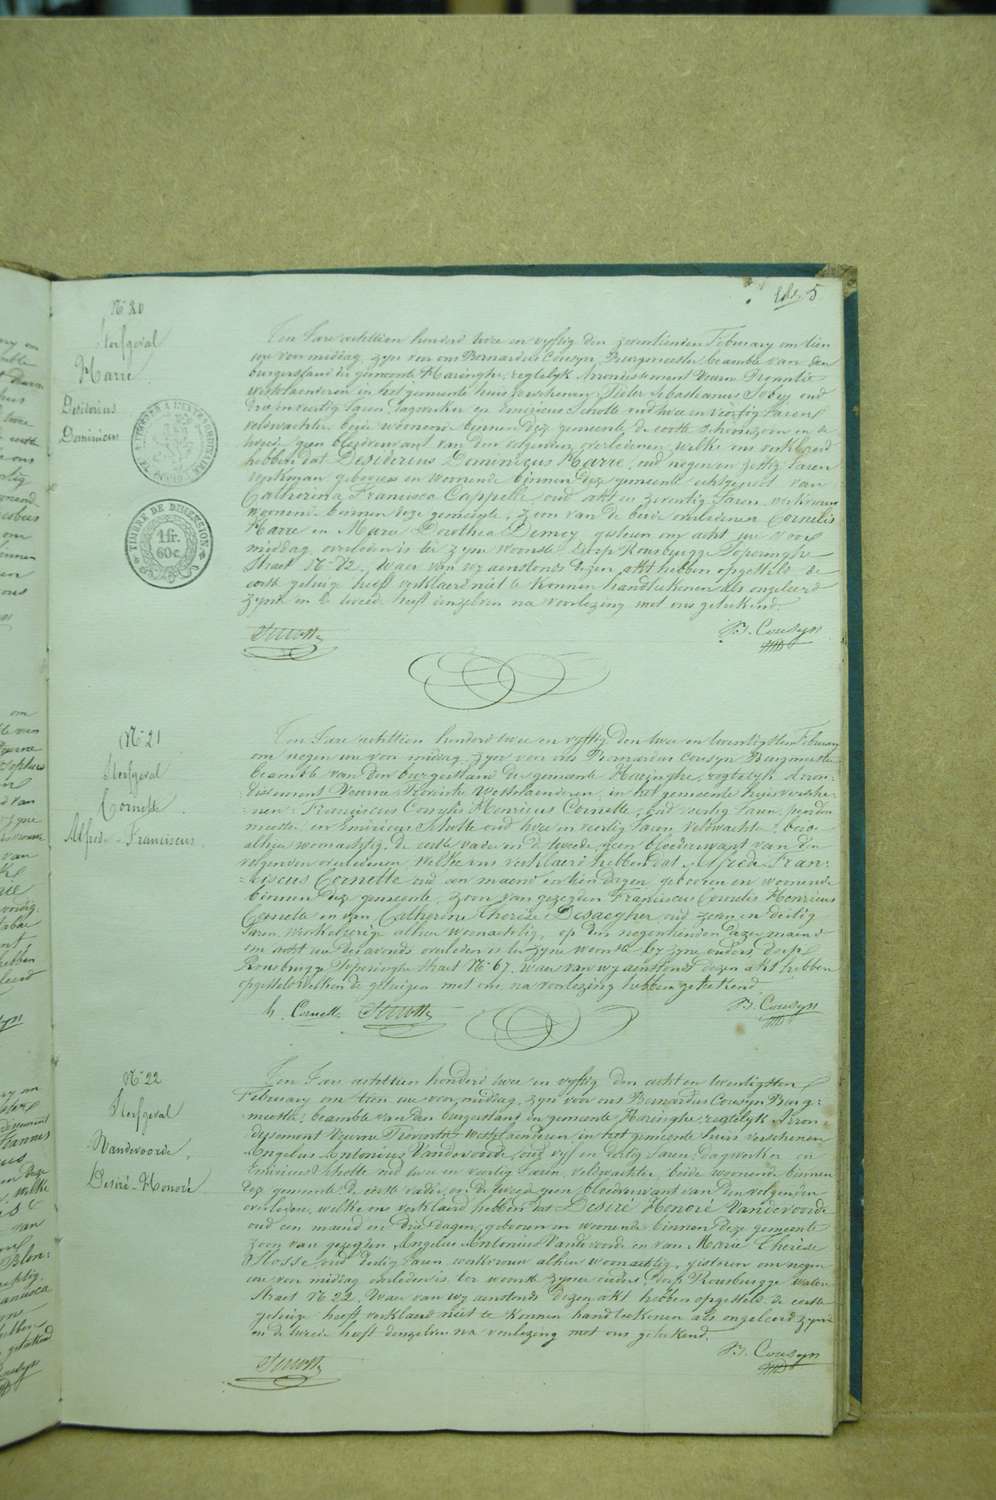 5
N° 20
Sterfgeval
Harre
Desiderius
Dominicus
TIMBRE DE DIMENSION
1 fr.
60 c.
Ten Jare achttien honderd twee en vyftig den zeventienden February om tien
ure voor middag, zyn voor ons Bernardus Cousyn, Burgmeester beambte van den
burgerstand der gemeente Haringhe, regtelyk Arrondissement Veurne Provintie
westvlaenderen in het gemeente huis verschenen Pieter Sebastianus oud
dry en veertig Jaren, dagwerker en Emiricus Scholte oud twee en veertig Jaren
veldwachter beide woonende binnen deze gemeente de eerste schoonzoon en de
tweede geen bloedverwant van den volgenden overledenen, welke ons verklaerd
hebben dat Desiderius Dominicus Harre, oud negen en Jaren
werkman geboren en woonende binnen deze gemeente echtgenoot van
Catherina Francisca Cappelle, oud acht en Jaren werkvrouw
woonende binnen deze gemeente, zoon van de beide overledenen Cornelis
Harre en Marie Dorothea Demey gisteren om acht ure voor
middag overleden is ter zyne woonste dorp Rousbrugge Poperinghe
Straet N° 72, Waer van wy aenstonds dezen akt hebben opgesteld de
eerste getuige heeft verklaerd niet te konnen handteekenen als ongeleerd
zynde en de tweede heeft denzelven na voorlezing met ons geteekend.
B. Cousyn
N° 21
Sterfgeval
Cornette
Alfred-Franciscus
Ten Jare achttien honderd twee en vyftig den twee en twentigsten February
om negen ure voor middag, zyn voor ons Bernardus Cousyn Burgmeester
beambte van den burgerstand der gemeente Haringhe, regtelyk Arron-
dissement Veurne Provintie Westvlaenderen, in het gemeente huis versche-
nen Franciscus Cornelis Henricus Cornette, oud veertig Jaren,
en Emiricus Scholte oud twee en veertig Jaren veldwachter, beide
alhier woonachtig, de eerste vader en de tweede geen bloedverwant van den
volgenden overledenen welke ons verklaerd hebben dat Alfred Fran-
ciscus Cornette oud een maend en tien dagen geboren en woonende
binnen deze gemeente, zoon van gezegden Franciscus Cornelis Henricus
Cornette en van Catherine Therese Desaegher oud zeven en dertig
Jaren, werketrein alhier woonachtig, op den negentienden dezer maend
om acht ure des avonds overleden is ter zyne woonste by zyne ouders dorp
Rousbrugge Poperinghe straet N° 67. Waer van wy aenstonds dezen akt hebben
opgesteld welken de getuigen met ons na voorlezing hebben geteekend
h. Cornette
B. Cousyn
N° 22
Sterfgeval
Vandevoorde
Desiré-Honoré
Ten Jare achttien honderd twee en vyftig den acht en twentigsten
February om tien ure voor middag, zyn voor ons Bernardus Cousyn Burg-
meester beambte van den burgerstand der gemeente Haringhe regtelyk Arron-
dissement Veurne Provintie Westvlaenderen in het gemeente huis verschenen
Angelus Antonius Vandevoorde oud vyf en dertig Jaren Dagwerker en
Emiricus Scholte oud twee en veertig Jaren, veldwachter, beide woonende binnen
deze gemeente de eerste vader, en de tweede geen bloedverwant van den volgenden
overleden, welke ons verklaerd hebben dat Desiré Honoré Vandevoorde
oud een maend en drie Dagen, geboren en woonende binnen deze gemeente
zoon van gezegden Angelus Antonius Vandevoorde en van Marie Thérèse
oud dertig Jaren, werkvrouw alhier woonachtig, gisteren om negen
ure voor middag overleden is, ter woonste zyner ouders, dorp Rousbrugge
Straet N° 22. Waer van wy aenstonds dezen akt hebben opgesteld de eerste
getuige heeft verklaerd niet te konnen handteekenen als ongeleerd zynde
en de tweede heeft denzelven na voorlezing met ons geteekend.
B. Cousyn